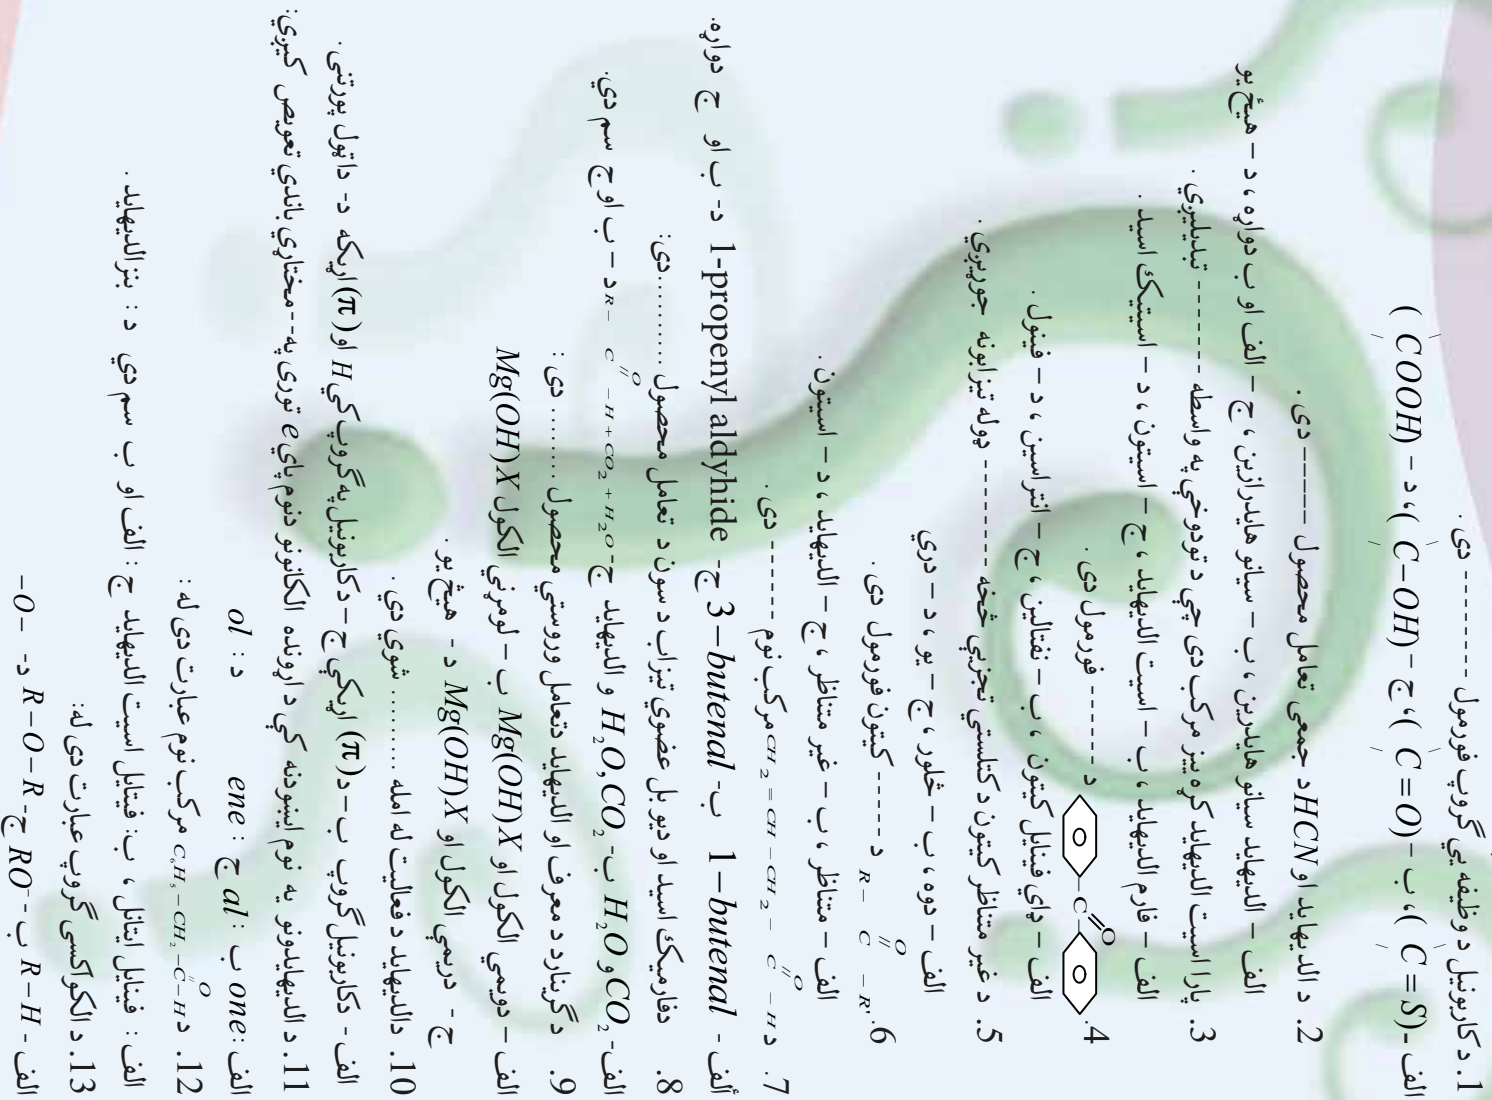 1. د کاربونیل د وظیفه یي گروپ فورمول --------- دی .
الف ـ (C = S) ، ب – (C = O) ، ج – (C – OH) ، د – (COOH)
2. د الدیهاید او HCN د جمعی تعامل محصول ------ دی .
الف – الدیهاید سیانو هایدرین ، ب – سیانو هایدرازین ، ج – الف او ب دواړه ، د – هیڅ یو
3. پارا اسیت الدیهاید کره ییز مرکب دی چي د تودوخي په واسطه -------- تبدیلیږي .
الف – فارم الدیهاید ، ب – اسیت الدیهاید ، ج – اسیتون ، د – استیک اسید .
4. C O د ------ فورمول دی .
الف – ډای فینایل کیتون ، ب – نفتالین ، ج – انتراسین ، د – فینول .
5. د غیر متناظر کیتون د کتلستي تجزیې څخه -------- ډوله تیزابونه جوړیږي .
الف – دوه ، ب – څلور ، ج – یو ، د – دري
6. R – C (=O) – R' د ------ کیتون فورمول دی .
الف – متناظر ، ب – غیر متناظر ، ج – الدیهاید ، د – اسیتون .
7. د CH₂ = CH – CH₂ – C (=O) – H مرکب نوم ------- دی .
ألف - 1 – butenal ب- 3 – butenal ج- 1-propenyl aldyhide د- ب او ج دواړه.
8. دفارمیک اسید او دیو بل عضوي تیزاب د سون د تعامل محصول ..........دی:
الف- CO₂ و H₂O ب- H₂O,CO₂ و الدیهاید ج- R – C (=O) – H + CO₂ + H₂O د – ب او ج سم دي.
9. د گرینارد د معرف او الدیهاید دتعامل وروستي محصول ......... دی :
الف – دویمي الکول او Mg(OH)X ب – لومړني الکول Mg(OH)X
ج - دریمي الکول او Mg(OH)X د - هیڅ یو .
10. دالدیهاید د فعالیت له امله ......... شوي دي .
الف - دکاربونیل گروپ ب – د(π) اړیکي ج – دکاربونیل په گروپ کي H او (π) اړیکه د- داټول پورتنی .
11. د الدیهایدونو په نوم ایښودنه کي د اړونده الکانونو دنوم پای e توری په--مختاړي باندي تعویض کیږي:
الف: one ب : al ج : ene د : ol
12. د C₆H₅ – CH₂ – C (=O) – H مرکب نوم عبارت دی له :
الف : فینایل ایتانل ، ب: فینایل اسیت الدیهاید ج : الف او ب سم دي د : بنزالدیهاید .
13. د الکواکسی گروپ عبارت دی له:
الف - R – H ب - RO⁻ ج- R – O – R د- –O–